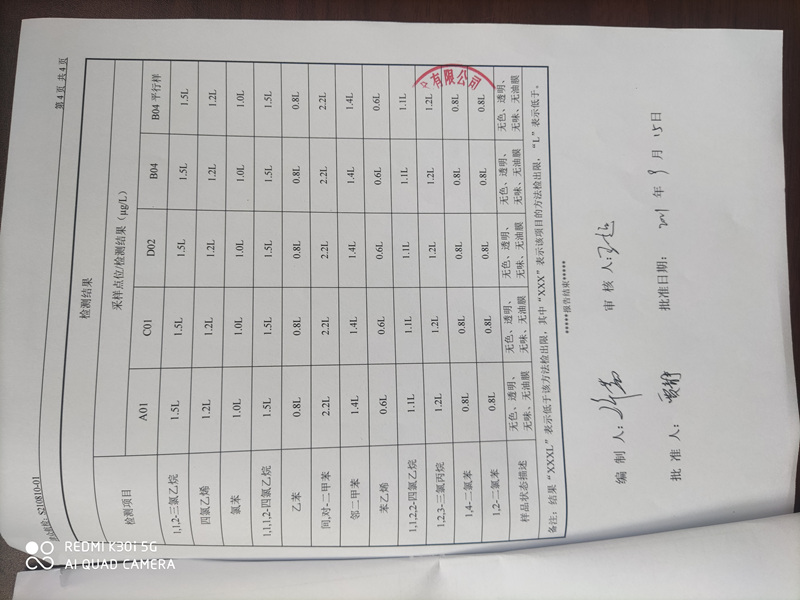 S210810-01
第 4 页 共 4 页
检测结果
检测项目 采样点位/检测结果（μg/L）
A01 C01 D02 B04 B04 平行样
1,1,2-三氯乙烷 1.5L 1.5L 1.5L 1.5L 1.5L
四氯乙烯 1.2L 1.2L 1.2L 1.2L 1.2L
氯苯 1.0L 1.0L 1.0L 1.0L 1.0L
1,1,1,2-四氯乙烷 1.5L 1.5L 1.5L 1.5L 1.5L
乙苯 0.8L 0.8L 0.8L 0.8L 0.8L
间,对-二甲苯 2.2L 2.2L 2.2L 2.2L 2.2L
邻二甲苯 1.4L 1.4L 1.4L 1.4L 1.4L
苯乙烯 0.6L 0.6L 0.6L 0.6L 0.6L
1,1,2,2-四氯乙烷 1.1L 1.1L 1.1L 1.1L 1.1L
1,2,3-三氯丙烷 1.2L 1.2L 1.2L 1.2L 1.2L
1,4-二氯苯 0.8L 0.8L 0.8L 0.8L 0.8L
1,2-二氯苯 0.8L 0.8L 0.8L 0.8L 0.8L
样品状态描述 无色、透明、 无色、透明、 无色、透明、 无色、透明、 无色、透明、
无味、无油膜 无味、无油膜 无味、无油膜 无味、无油膜 无味、无油膜
备注：结果“XXXL”表示低于该方法检出限，其中“XXX”表示该项目的方法检出限，“L”表示低于。
*****报告结束*****
有限公司
编 制 人： 审 核 人：
批 准 人： 批准日期： 2021 年 9 月 15 日
REDMI K30i 5G
AI QUAD CAMERA